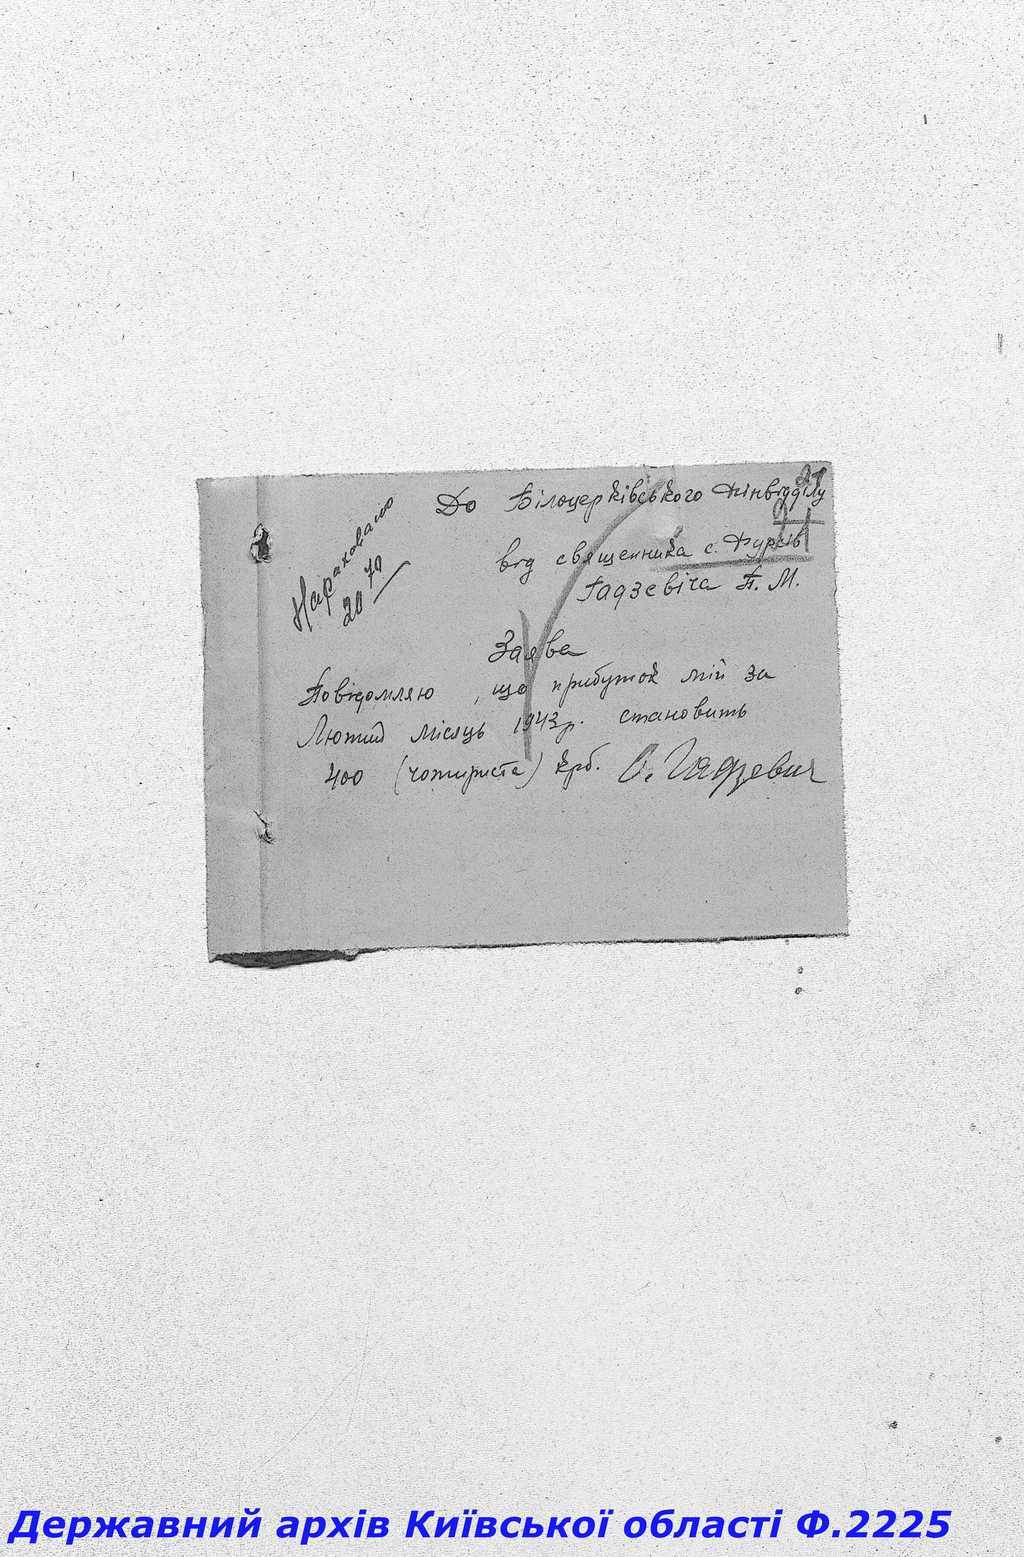 21
До Білоцерківського Фінвідділу
від священника с. Фурсів
Гадзевіча П. М.
Нараховано
20 70
Заява
Повідомляю, що прибуток мій за
Лютий місяць 1943 р. становить
400 (чотириста) крб. С. Гадзевич
Державний архів Київської області Ф.2225